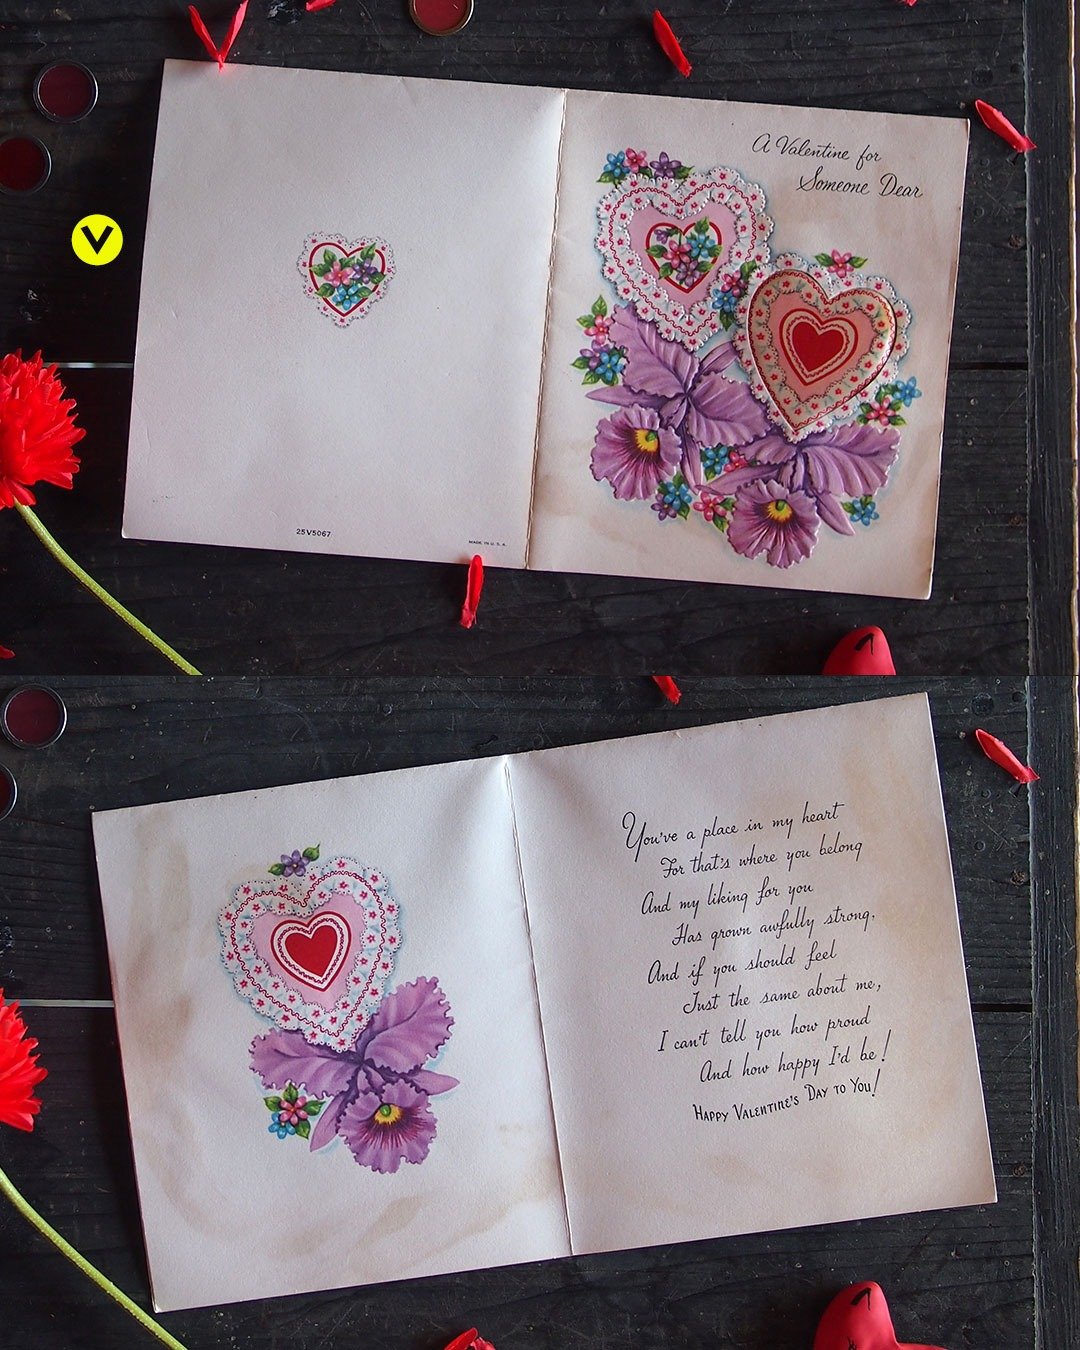 V
A Valentine for
Someone Dear
25V5067
MADE IN U. S. A.
You've a place in my heart
For that's where you belong
And my liking for you
Has grown awfully strong.
And if you should feel
Just the same about me,
I can't tell you how proud
And how happy I'd be!
HAPPY VALENTINE'S DAY TO YOU!